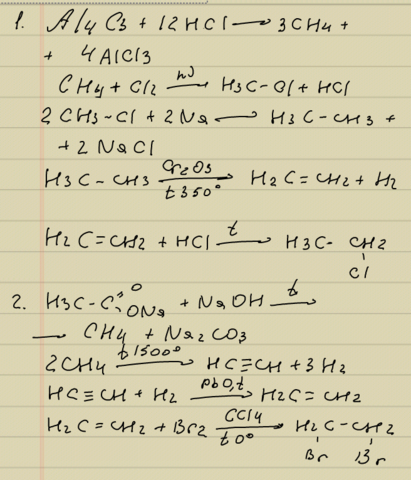 1. Al4C3 + 12HCl → 3CH4 +
+ 4AlCl3
CH4 + Cl2 hν→ H3C-Cl + HCl
2CH3-Cl + 2Na → H3C-CH3 +
+ 2NaCl
H3C-CH3 Cr2O3 t350°→ H2C=CH2 + H2
H2C=CH2 + HCl t→ H3C-CH2
Cl
2. H3C-C O ONa + NaOH t→
→ CH4 + Na2CO3
2CH4 t1500°→ HC≡CH + 3H2
HC≡CH + H2 PbO,t→ H2C=CH2
H2C=CH2 + Br2 CCl4 t0°→ H2C-CH2
Br Br